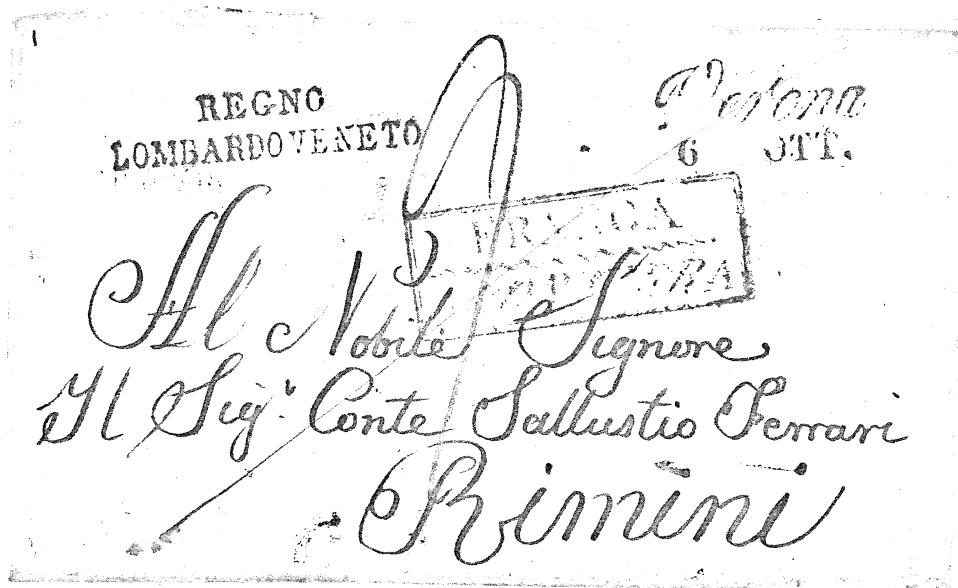 REGNO
LOMBARDO VENETO
Verona
6 OTT.
Al Nobile Signore
Il Sig.r Conte Sallustio Ferrari
Rimini